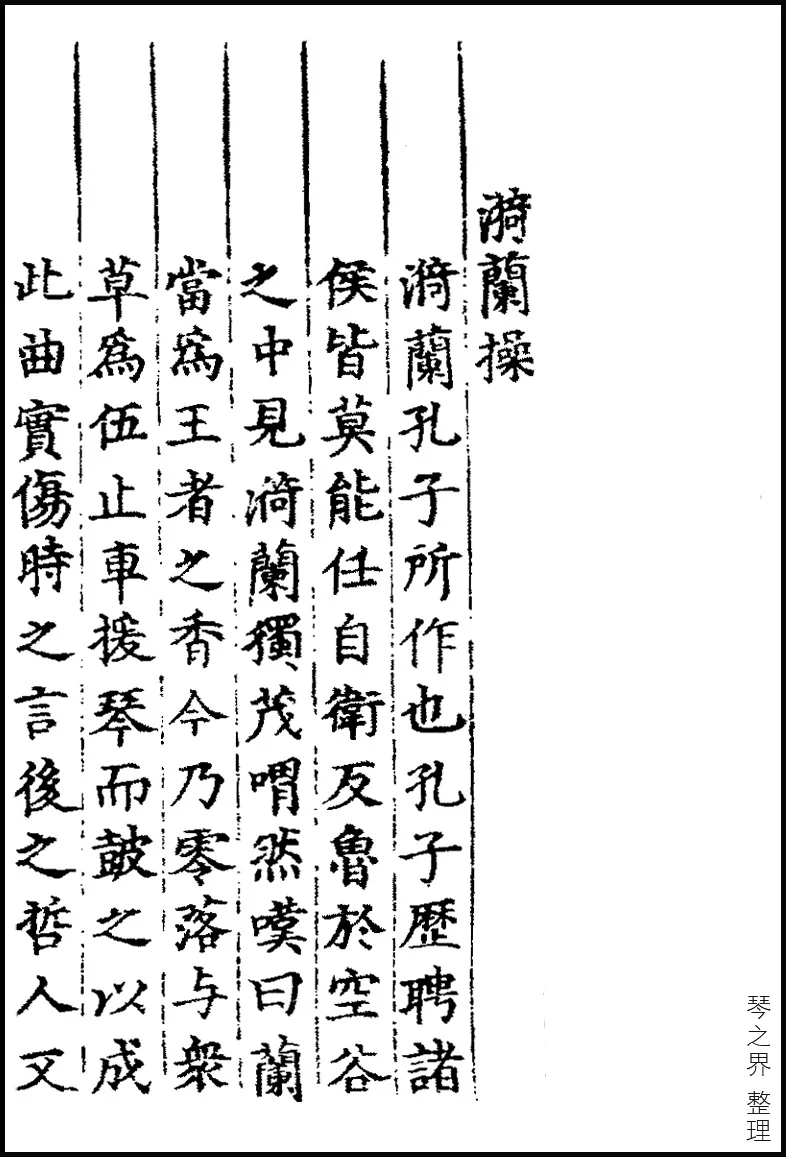 漪蘭操
漪蘭孔子所作也孔子歷聘諸
侯皆莫能任自衛反魯於空谷
之中見漪蘭獨茂喟然嘆曰蘭
當爲王者之香今乃零落与衆
草爲伍止車援琴而皷之以成
此曲實傷時之言後之哲人又
琴之界 整理